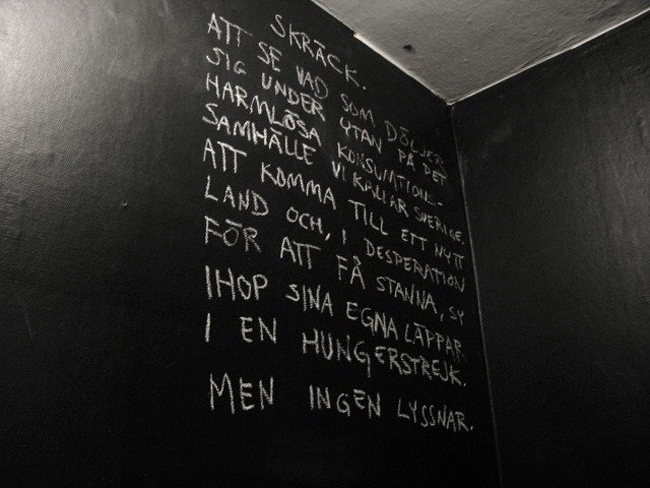 SKRÄCK.
ATT SE VAD SOM DÖLJER
SIG UNDER YTAN PÅ DET
HARMLÖSA KONSUMTIONS-
SAMHÄLLE VI KALLAR SVERIGE.
ATT KOMMA TILL ETT NYTT
LAND OCH, I DESPERATION
FÖR ATT FÅ STANNA, SY
IHOP SINA EGNA LÄPPAR
I EN HUNGERSTREJK.
MEN INGEN LYSSNAR.